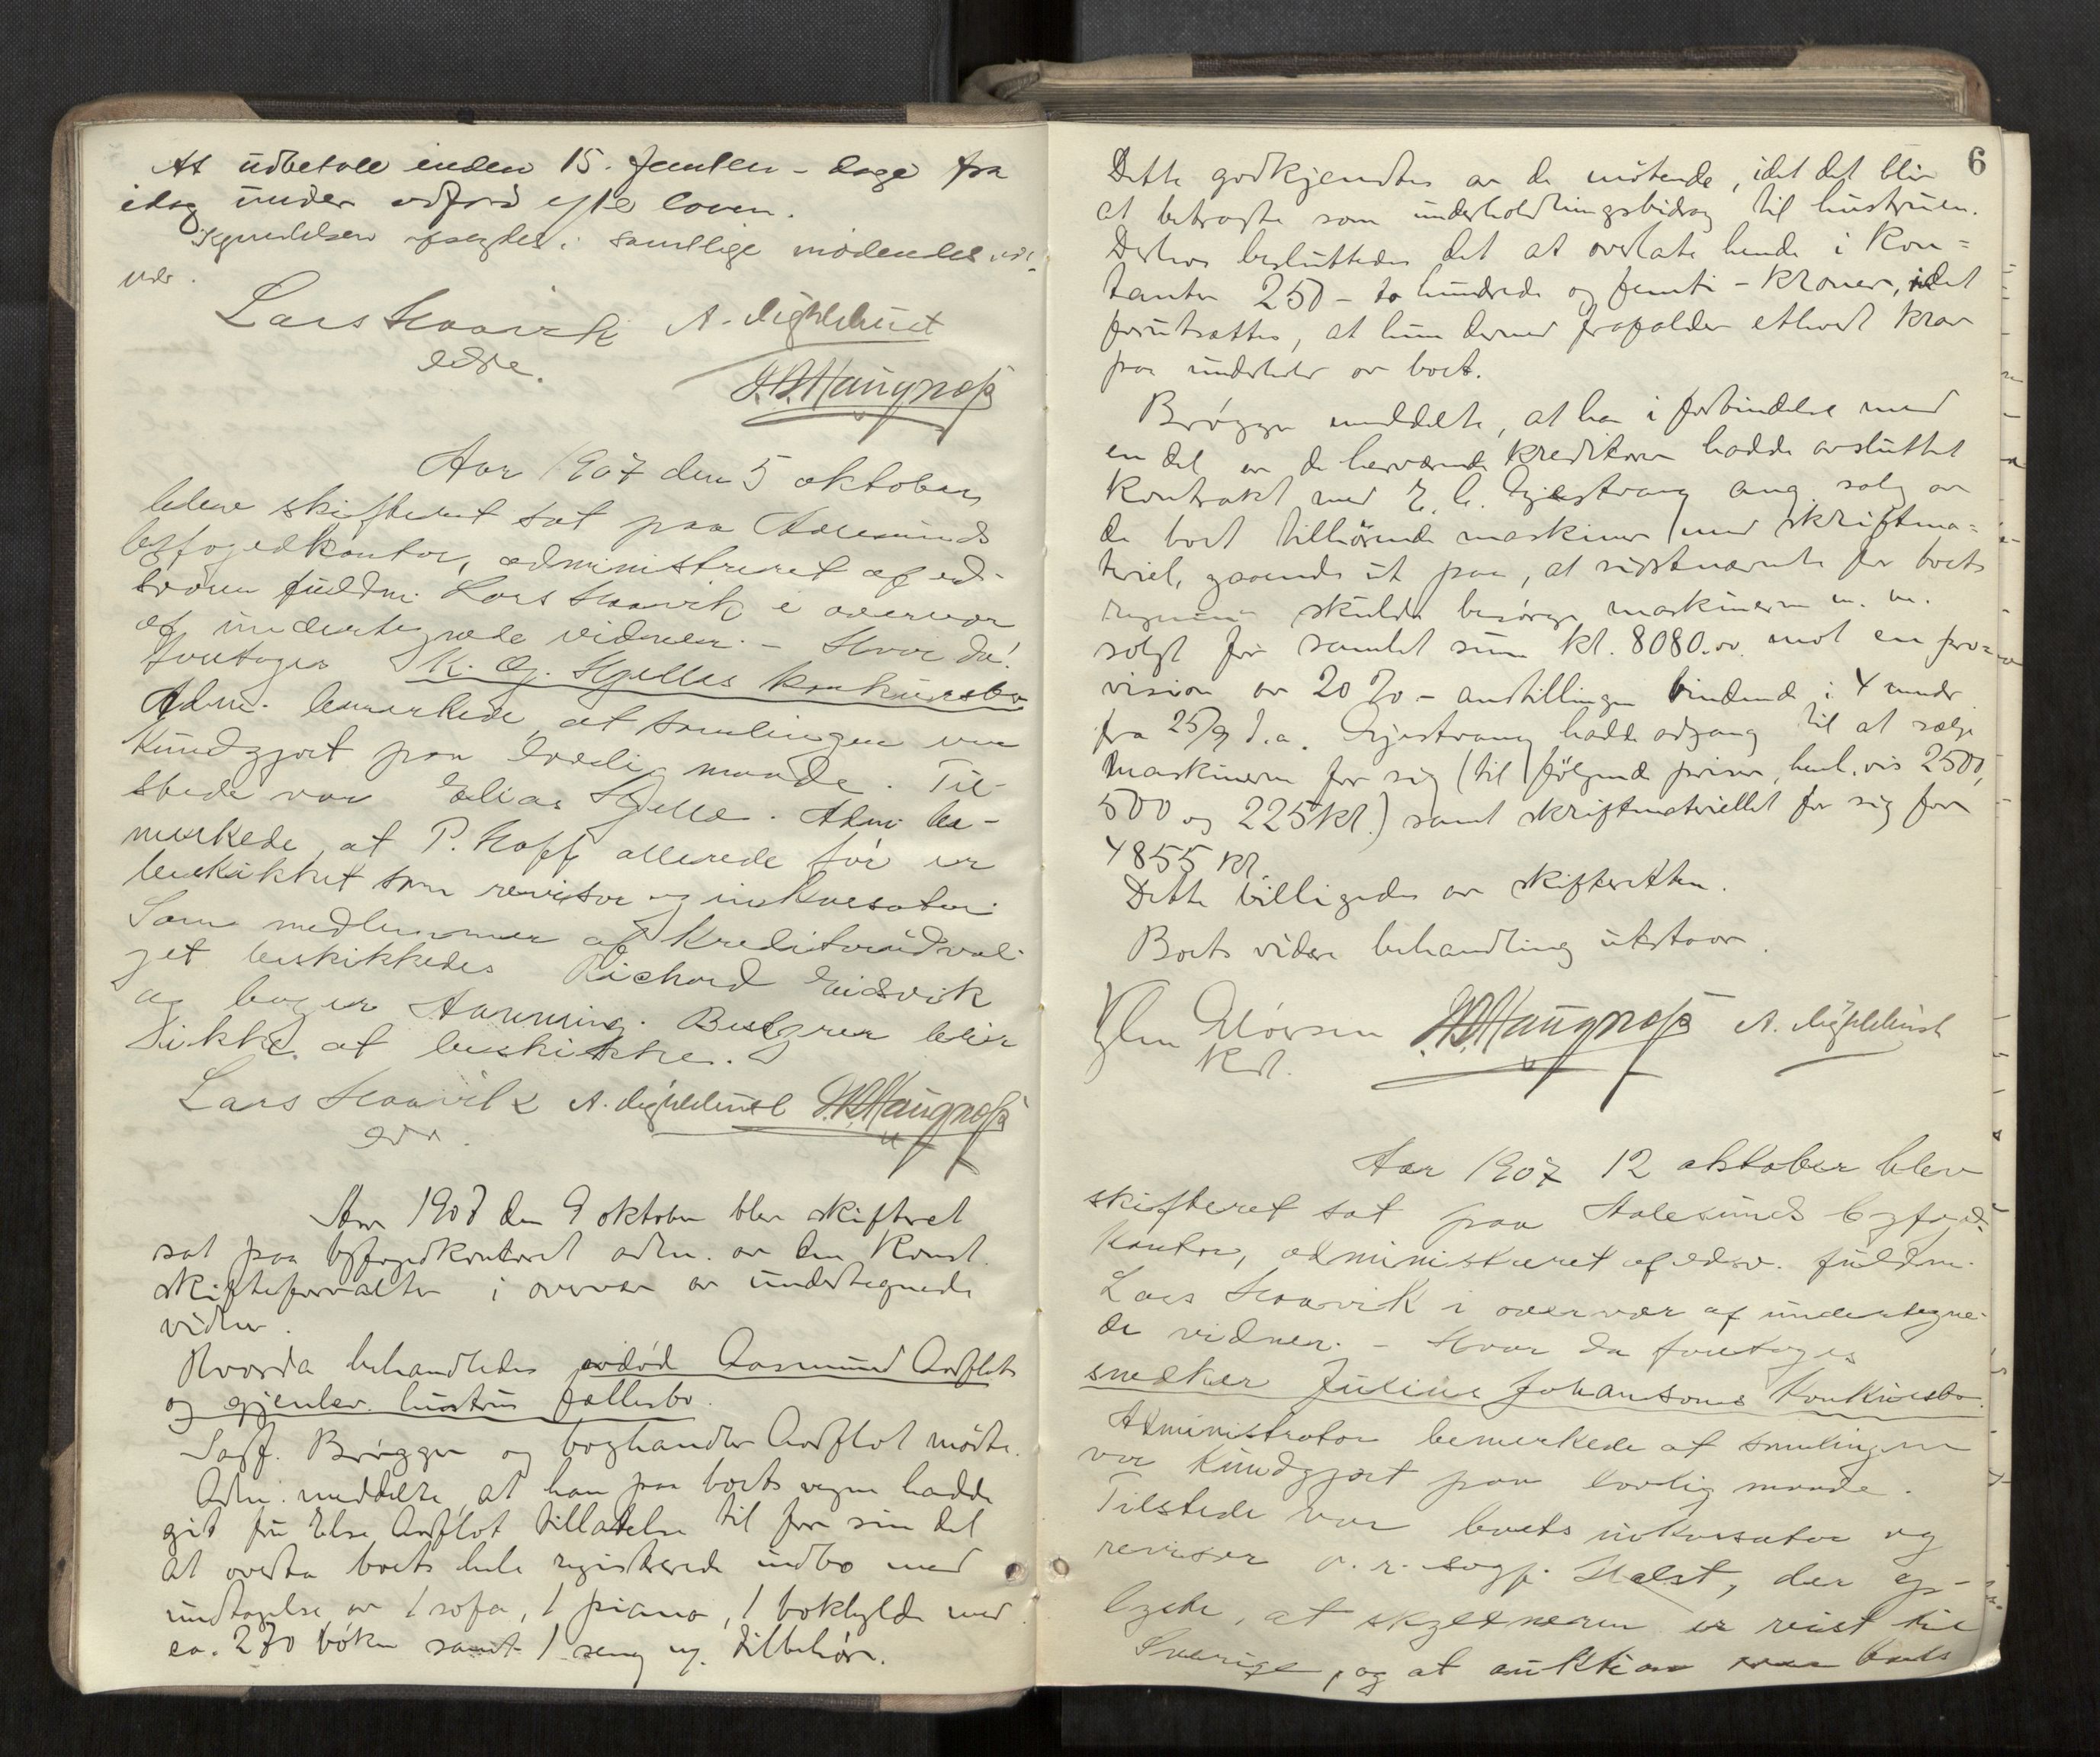 At udbetale inden 15. femten - dage fra
idag under adfærd efter loven.
Kjendelsen afsagdes i samtlige mødendes
Lars Haavik A.
edsv.
Aar 1907 den 5 oktober
blev skifteret sat paa Aalesunds
byfogedkontor, administreret af ed-
svoren fuldm. Lars Haavik i overvær
af undertegnede vidner. - Hvor da!
foretoges K. Hjelles konkursbo
Adm. bemerkede, at samlingen var
kundgjort paa lovlig maade. Til-
stede var Elias Hjelle. Adm. be-
merkede, at P. Hoff allerede før er
beskikket som revisor og inkassator.
Som medlemmer af kreditorudval-
get beskikkedes Richard Eidsvik
og bager Aanning. Bestyrer blir
ikke at beskikke.
Lars Haavik A.
edsv.
Aar 1907 den 9 oktober blev skifteret
sat paa byfogedkontoret adm. av den konst.
skifteforvalter i overvær av undertegnede
vidner.
Hvorda behandledes avdød Aasmund Aarflots
og gjenlev. hustrus fællesbo.
Sagf. Brøgger og boghandler Aarflot møtte.
Adm. meddelte, at han paa boets vegne hadde
git fru Else Aarflot tillatelse til for sin del
at overta boets hele registrerede indbo med
undtagelse av 1 sofa, 1 piano, 1 bokhylde med
ca. 270 bøker samt 1 seng og tilbehør.
6
Dette godkjendtes av de møtende, idet det blir
at betragte som underholdningsbidrag til hustruen.
Derhos besluttedes det at overlate hende i kon=
tanter 250 - to hundrede og femti - kroner, idet
forutsættes, at hun dermed frafalder ethvert krav
paa underhold av boet.
Brøgger meddelte, at han i forbindelse med
en del av de herværende kreditorer hadde avsluttet
kontrakt med E. C. Gjestvang ang. salg av
de boet tilhørende maskiner med skriftma=
teriel, gaaende ut paa, at sidstnævnte for boets
regning skulde besørge maskinerne m. m.
solgt for samlet sum kr. 8080.00 mot en pro=
vision av 20 % - anstillingen bindende i 4 mndr
fra 25/9 d. a. Gjestvang hadde adgang til at sælge
maskinerne for sig (til følgende priser, henh.vis 2500,
500 og 225 kr.) samt skriftmateriellet for sig for
4855 kr.
Dette billigedes av skifteretten.
Boets videre behandling utstaar.
A.
Kst.
Aar 1907 12 oktober blev
skifteret sat paa Aalesunds byfoged-
kontor, administreret af edsv. fuldm.
Lars Haavik i overvær af undertegne-
de vidner. - Hvor da foretoges
snedker Julius Johansons konkursbo.
Administrator bemerkede at samlingen
var kundgjort paa lovlig maade.
Tilstede var boets inkassator og
revisor o. r. sagf. Holst, der op-
lyste, at skyldneren er reist til
Sverige, og at auktion over boets